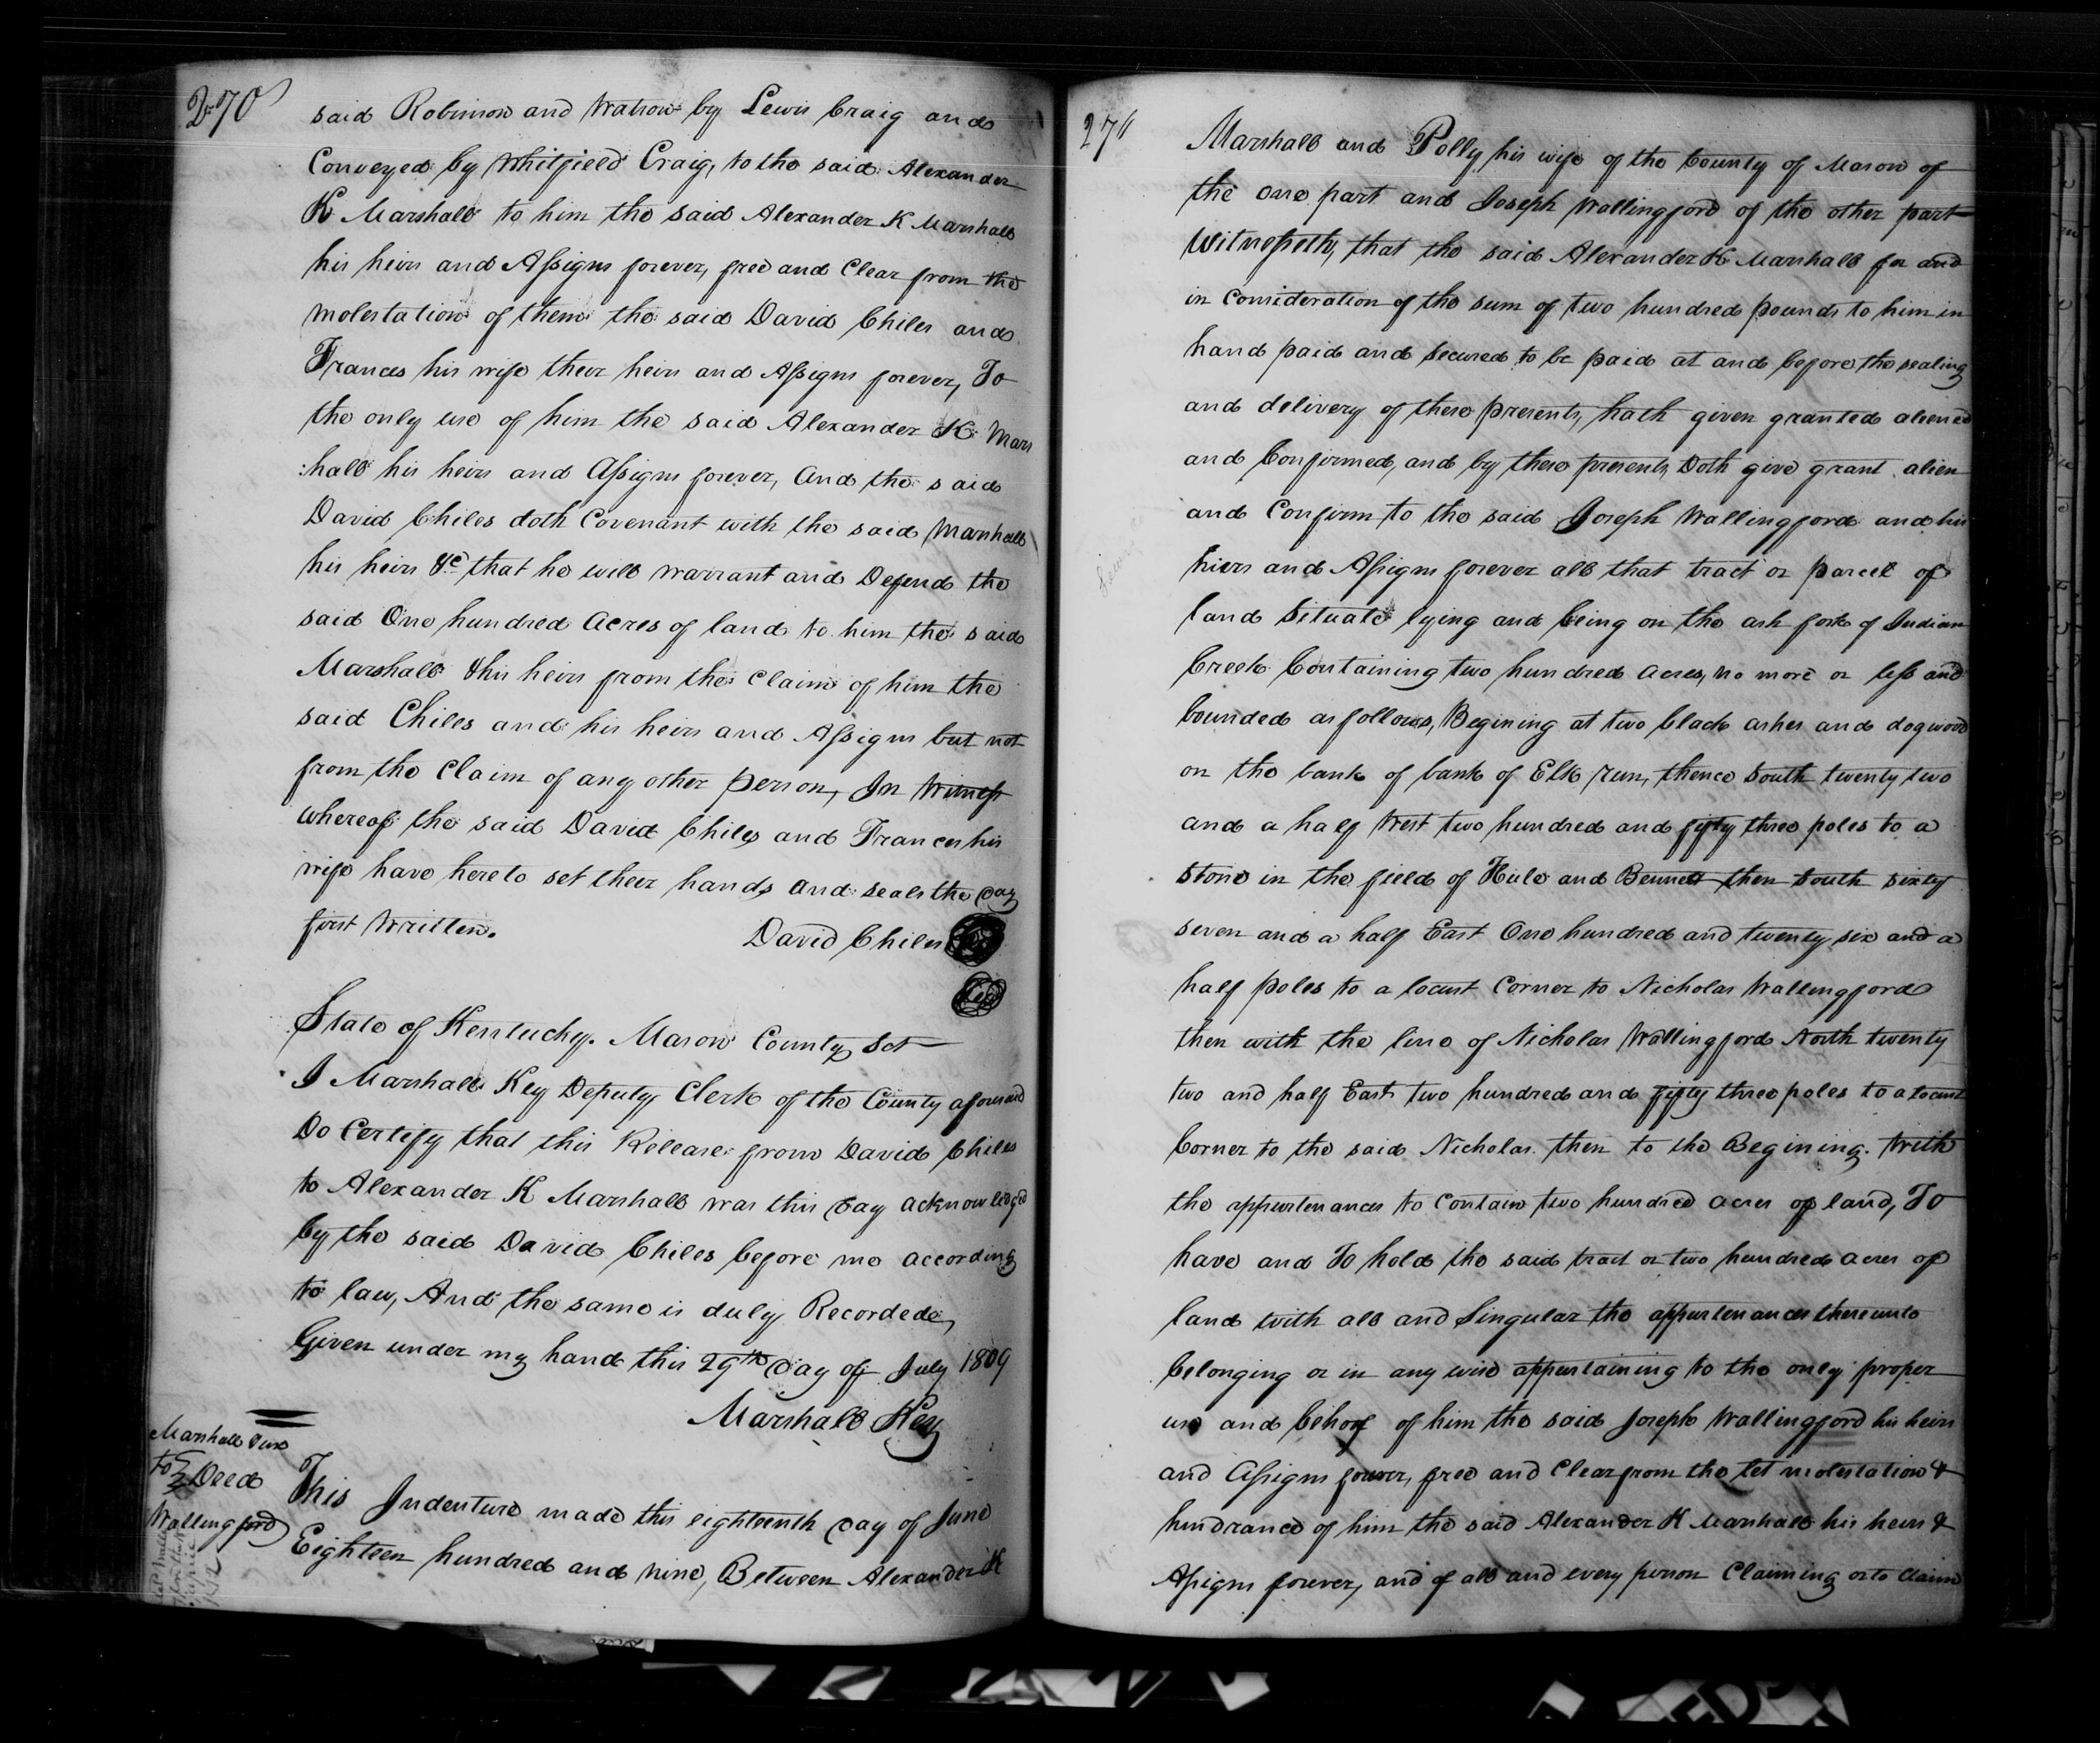 270
said Robinson and Watson by Lewis Craig and
Conveyed by Whitfield Craig, to the said Alexander
K Marshall to him the said Alexander K Marshall
his heirs and Assigns forever, free and Clear from the
molestation of them the said David Chiles and
Frances his wife their heirs and Assigns forever, To
the only use of him the said Alexander K Mars
:hall his heirs and Assigns forever, And the said
David Chiles doth Covenant with the said Marshall
his heirs &c that he will warrant and Defend the
said One hundred Acres of land to him the said
Marshall & his heirs from the Claim of him the
said Chiles and his heirs and Assigns but not
from the Claim of any other person, In Witness
whereof the said David Chiles and Frances his
wife have hereto set their hands and seals the day
first Written.
David Chiles
State of Kentucky. Mason County Sct
I Marshall Key Deputy Clerk of the County aforesaid
Do Certify that this Release from David Chiles
to Alexander K Marshall was this day acknowledged
by the said David Chiles before me according
to law, And the same is duly Recorded,
Given under my hand this 29th day of July 1809
Marshall Key
Marshall & ux
to Deed
Wallingford
This Indenture made this eighteenth day of June
Eighteen hundred and nine, Between Alexander K
271
Marshall and Polly his wife of the County of Mason of
the one part and Joseph Wallingford of the other part
Witnesseth, that the said Alexander K Marshall for and
in Consideration of the sum of two hundred pounds to him in
hand paid and secured to be paid at and before the sealing
and delivery of these presents, hath given granted aliened
and Confirmed, and by these presents Doth give grant alien
and Confirm to the said Joseph Wallingford and his
hiers and Assigns forever all that tract or parcel of
land Situate lying and being on the ash fork of Indian
Creek Containing two hundred acres, no more or less and
bounded as follows, Begining at two black ashes and dogwood
on the bank of bank of Elk run, thence South twenty two
and a half West two hundred and fifty three poles to a
Stone in the field of Hule and Bennett then South sixty
seven and a half East One hundred and twenty six and a
half poles to a locust Corner to Nicholas Wallingford
then with the line of Nicholas Wallingford North twenty
two and half East two hundred and fifty three poles to a locust
Corner to the said Nicholas then to the Begining. With
the appurtenances to Contain two hundred acres of land, To
have and To hold the said tract or two hundred acres of
land with all and Singular the appurtenances thereunto
belonging or in any wise appurtaining to the only proper
use and behoof of him the said Joseph Wallingford his heirs
and Assigns forever, free and Clear from the let molestation &
hindrance of him the said Alexander K Marshall his heirs &
Assigns forever, and of all and every person Claiming or to Claim